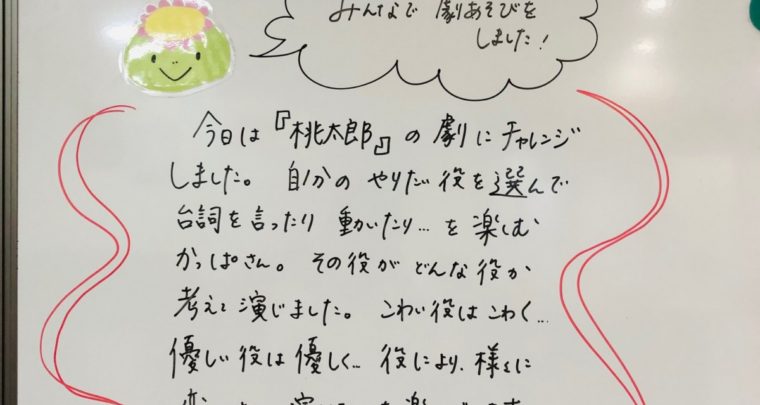 みんなで 劇あそびを
しました!
今日は『桃太郎』の劇にチャレンジ
しました。 自分の やりたい役を選んで
台詞を言ったり 動いたり…を楽しむ
かっぱさん。 その役が どんな役か
考えて演じました。 こわい役はこわく…
優しい役は優しく… 役により、様々に